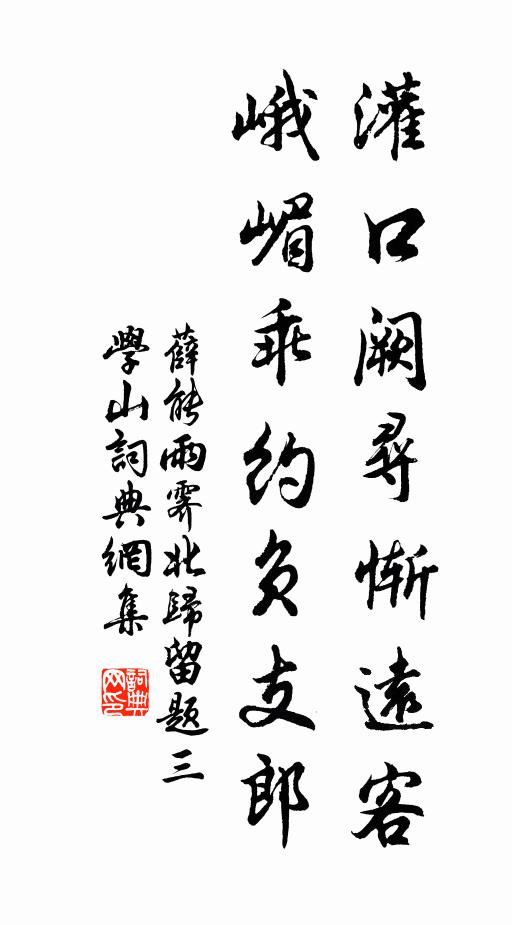 灌口闕尋慚遠客
峨嵋乖約負支郎
薛能雨霽北歸留題三
學山詞典網集
詞典网印